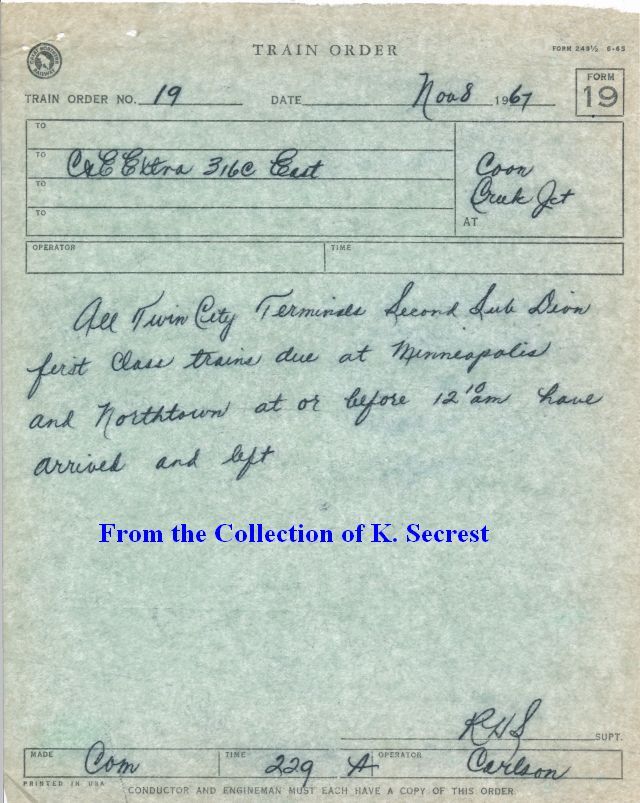 GREAT NORTHERN RAILWAY
TRAIN ORDER
FORM 248½ 6-65
TRAIN ORDER NO. 19 DATE Nov 8 1967
FORM 19
TO
TO C&E Extra 316C East
TO
TO
Coon
Creek Jct
AT
OPERATOR TIME
All Twin City Terminals Second Sub Divn
first Class trains due at Minneapolis
and Northtown at or before 12 10 am have
arrived and left
From the Collection of K. Secrest
RHS SUPT.
MADE Com TIME 229 A OPERATOR Carlson
PRINTED IN USA
CONDUCTOR AND ENGINEMAN MUST EACH HAVE A COPY OF THIS ORDER